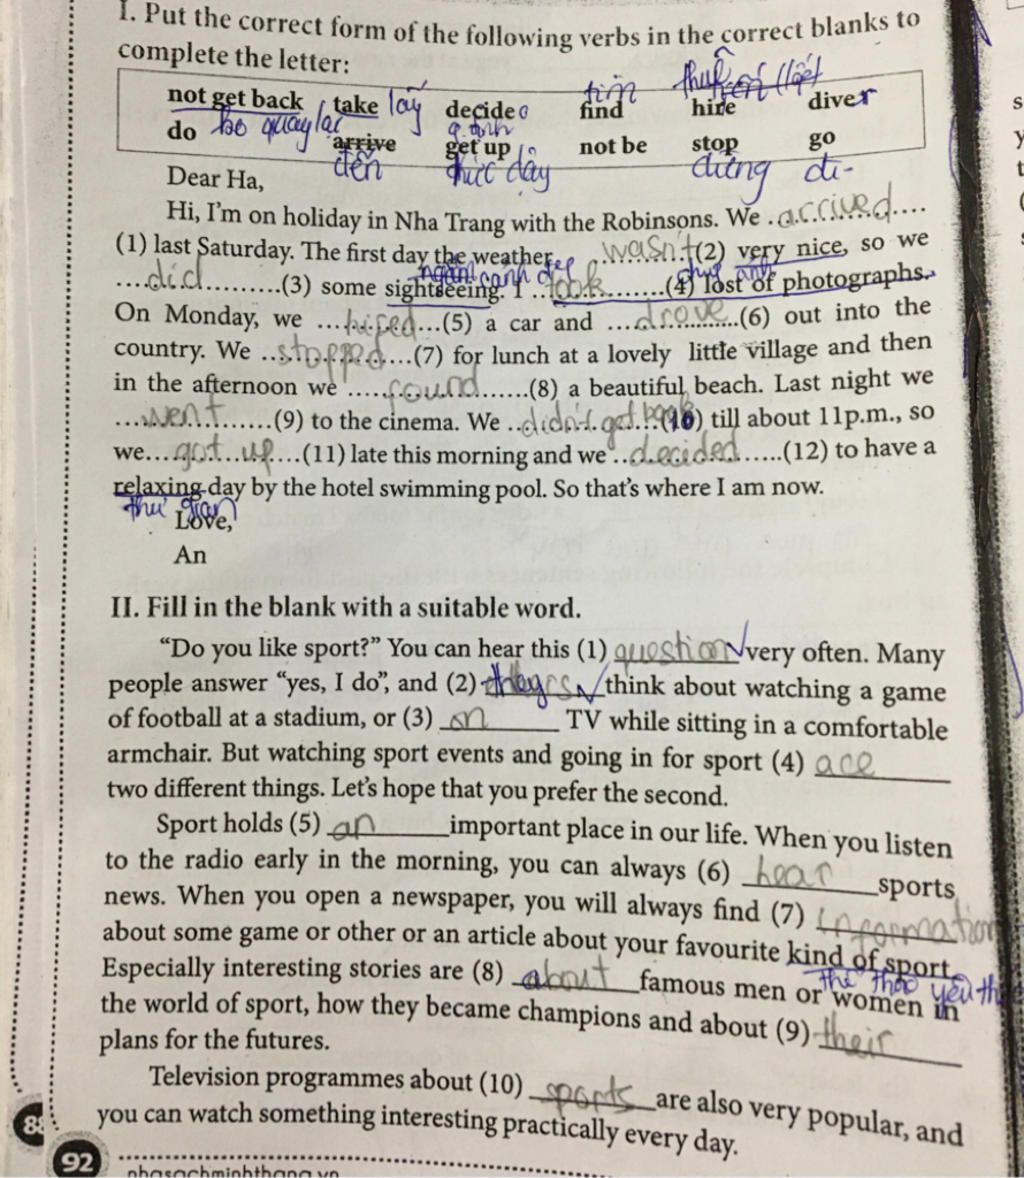 I. Put the correct form of the following verbs in the correct blanks to
complete the letter:
not get back take lấy decide find tìm hire thuê diver
do ko quay lại arrive đến get up thức dậy q.định not be stop dừng go đi
Dear Ha,
Hi, I'm on holiday in Nha Trang with the Robinsons. We .arrived....
(1) last Saturday. The first day the weather wasn't (2) very nice, so we
....did.........(3) some sightseeing. I ...took.......(4) lost of photographs.
ngắm cảnh đẹp
On Monday, we ...hired...(5) a car and ....drove......(6) out into the
country. We ..stopped....(7) for lunch at a lovely little village and then
in the afternoon we ....found......(8) a beautiful beach. Last night we
....went.......(9) to the cinema. We ..didn't get back..(10) till about 11p.m., so
we....got up....(11) late this morning and we ..decided......(12) to have a
relaxing day by the hotel swimming pool. So that's where I am now.
thư giãn
Love,
An
II. Fill in the blank with a suitable word.
"Do you like sport?" You can hear this (1) question very often. Many
people answer "yes, I do", and (2) think about watching a game
of football at a stadium, or (3) on TV while sitting in a comfortable
armchair. But watching sport events and going in for sport (4) are
two different things. Let's hope that you prefer the second.
Sport holds (5) an important place in our life. When you listen
to the radio early in the morning, you can always (6) hear sports
news. When you open a newspaper, you will always find (7) information
about some game or other or an article about your favourite kind of sport.
Especially interesting stories are (8) about famous men or women in
thể thao yêu th
the world of sport, how they became champions and about (9) their
plans for the futures.
Television programmes about (10) sports are also very popular, and
you can watch something interesting practically every day.
8
92
nhasachminhthang.vn